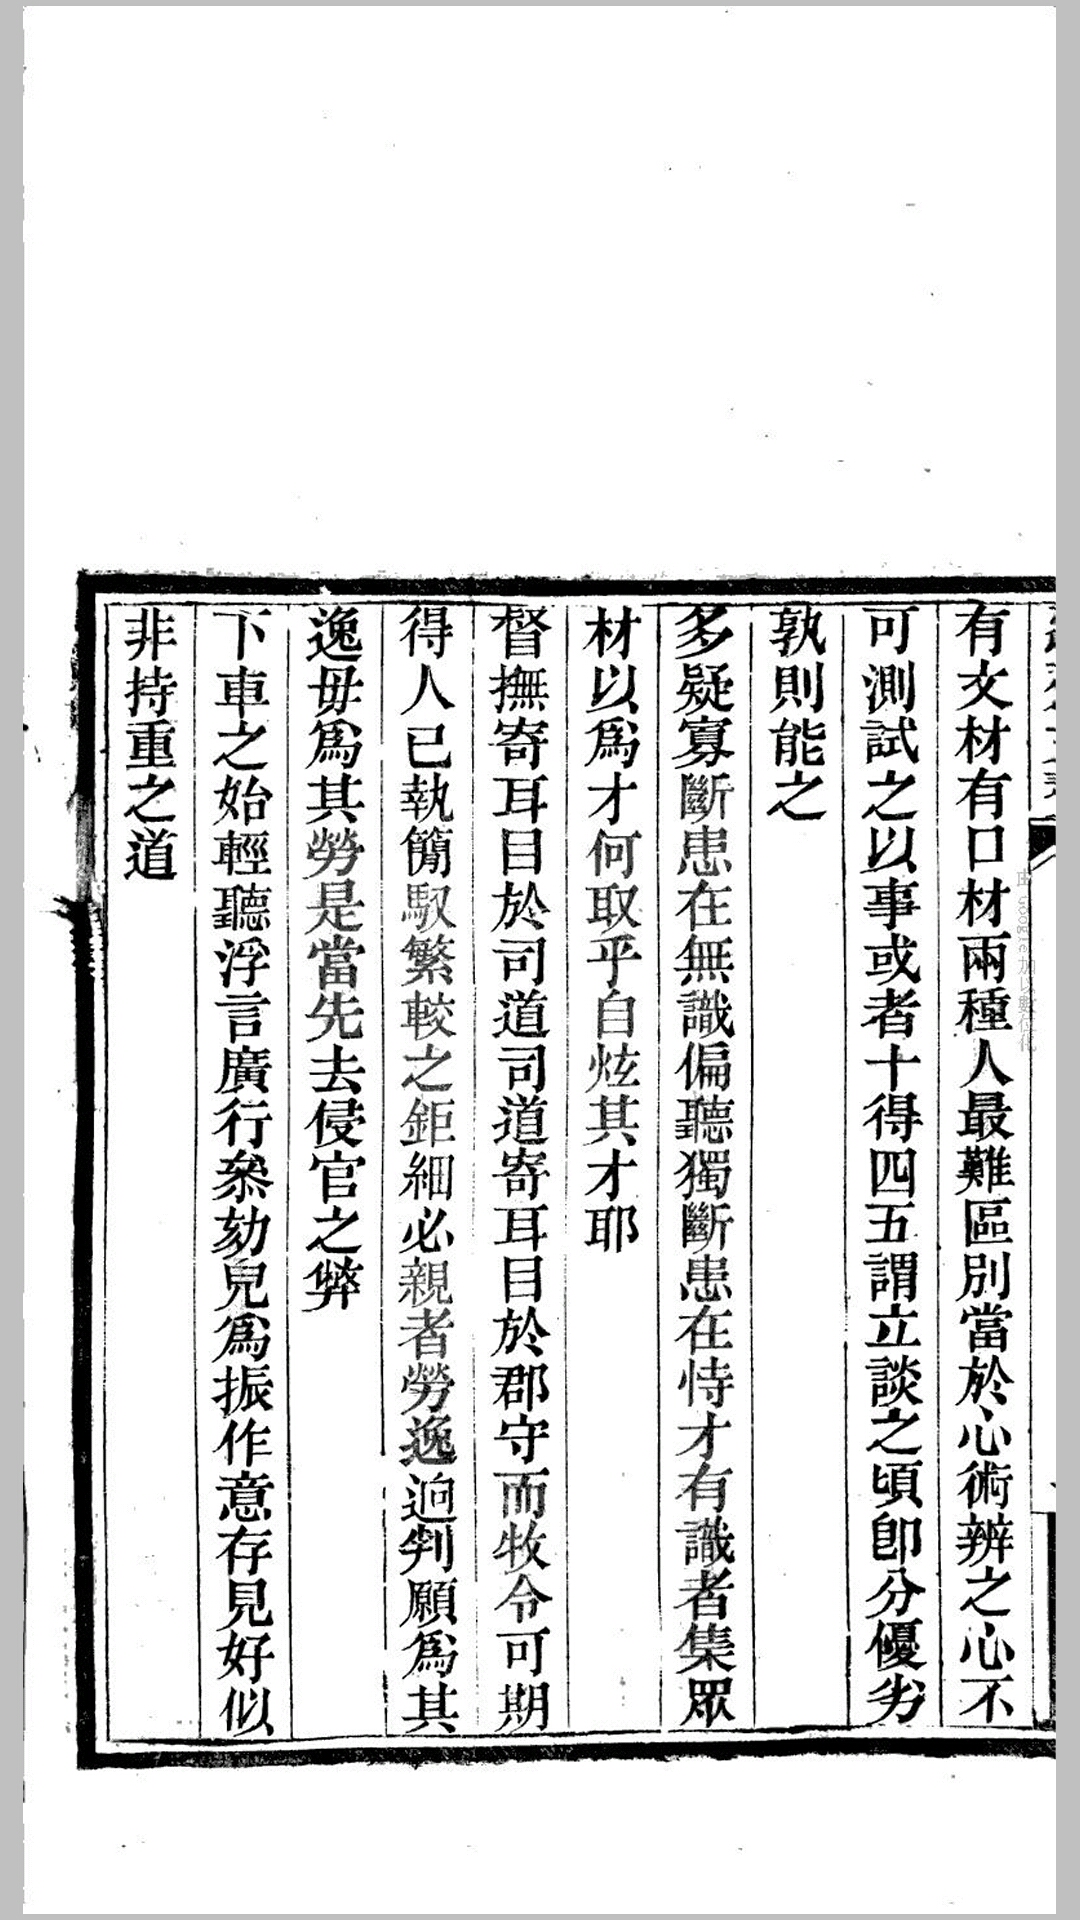 有文材有口材兩種人最難區別當於心術辨之心不
可測試之以事或者十得四五謂立談之頃卽分優劣
孰則能之
多疑寡斷患在無識偏聽獨斷患在恃才有識者集眾
材以爲才何取乎自炫其才耶
督撫寄耳目於司道司道寄耳目於郡守而牧令可期
得人已執簡馭繁較之鉅細必親者勞逸逈判願爲其
逸毋爲其勞是當先去侵官之弊
下車之始輕聽浮言廣行叅劾皃爲振作意存見好似
非持重之道
由 Google 加以數位化